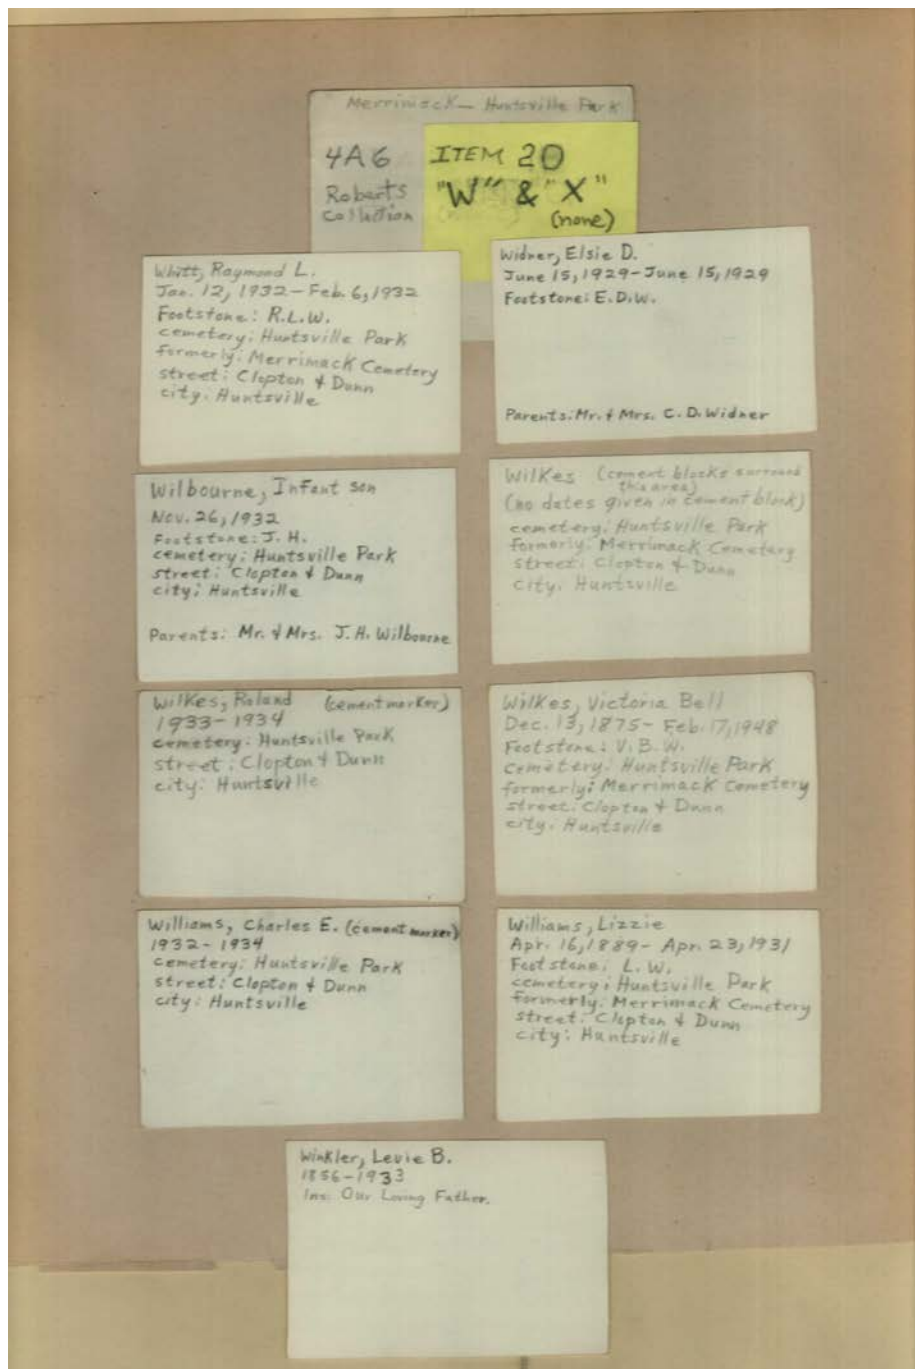 Merrimack - Huntsville Park
4A6
Roberts
Collection
ITEM 20
"W" & "X"
(none)
Whitt, Raymond L.
Jan. 12, 1932 - Feb. 6, 1932
Footstone: R.L.W.
cemetery: Huntsville Park
formerly: Merrimack Cemetery
street: Clopton & Dunn
city: Huntsville
Widner, Elsie D.
June 15, 1929 - June 15, 1929
Footstone: E.D.W.
Parents: Mr. & Mrs. C. D. Widner
Wilbourne, Infant son
Nov. 26, 1932
Footstone: J. H.
cemetery: Huntsville Park
street: Clopton & Dunn
city: Huntsville
Parents: Mr. & Mrs. J. H. Wilbourne
Wilkes (cement blocks surround
this area)
(no dates given in cement block)
cemetery: Huntsville Park
formerly: Merrimack Cemetery
street: Clopton & Dunn
city: Huntsville
Wilkes, Roland (cement marker)
1933 - 1934
cemetery: Huntsville Park
street: Clopton & Dunn
city: Huntsville
Wilkes, Victoria Bell
Dec. 13, 1875 - Feb. 17, 1948
Footstone: V. B. W.
cemetery: Huntsville Park
formerly: Merrimack Cemetery
street: Clopton & Dunn
city: Huntsville
Williams, Charles E. (cement marker)
1932 - 1934
cemetery: Huntsville Park
street: Clopton & Dunn
city: Huntsville
Williams, Lizzie
Apr. 16, 1889 - Apr. 23, 1931
Footstone: L. W.
cemetery: Huntsville Park
formerly: Merrimack Cemetery
street: Clopton & Dunn
city: Huntsville
Winkler, Levie B.
1856 - 1933
Ins: Our Loving Father.